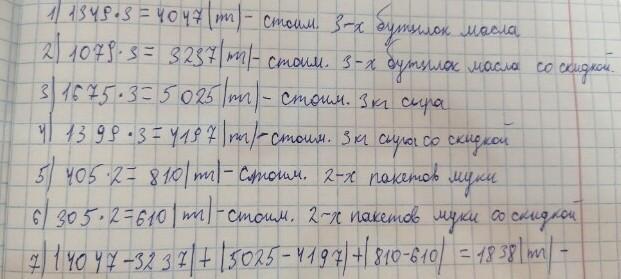 1) 1349·3=4047(тг)-стоим. 3-х бутылок масла
2) 1079·3= 3237(тг)-стоим. 3-х бутылок масла со скидкой.
3) 1675·3=5025(тг)-стоим. 3кг сыра
4) 1399·3=4197(тг)-стоим. 3кг сыра со скидкой
5) 405·2=810(тг)-стоим. 2-х пакетов муки
6) 305·2=610(тг)-стоим. 2-х пакетов муки со скидкой
7) (4047-3237)+(5025-4197)+(810-610) =1838(тг)-